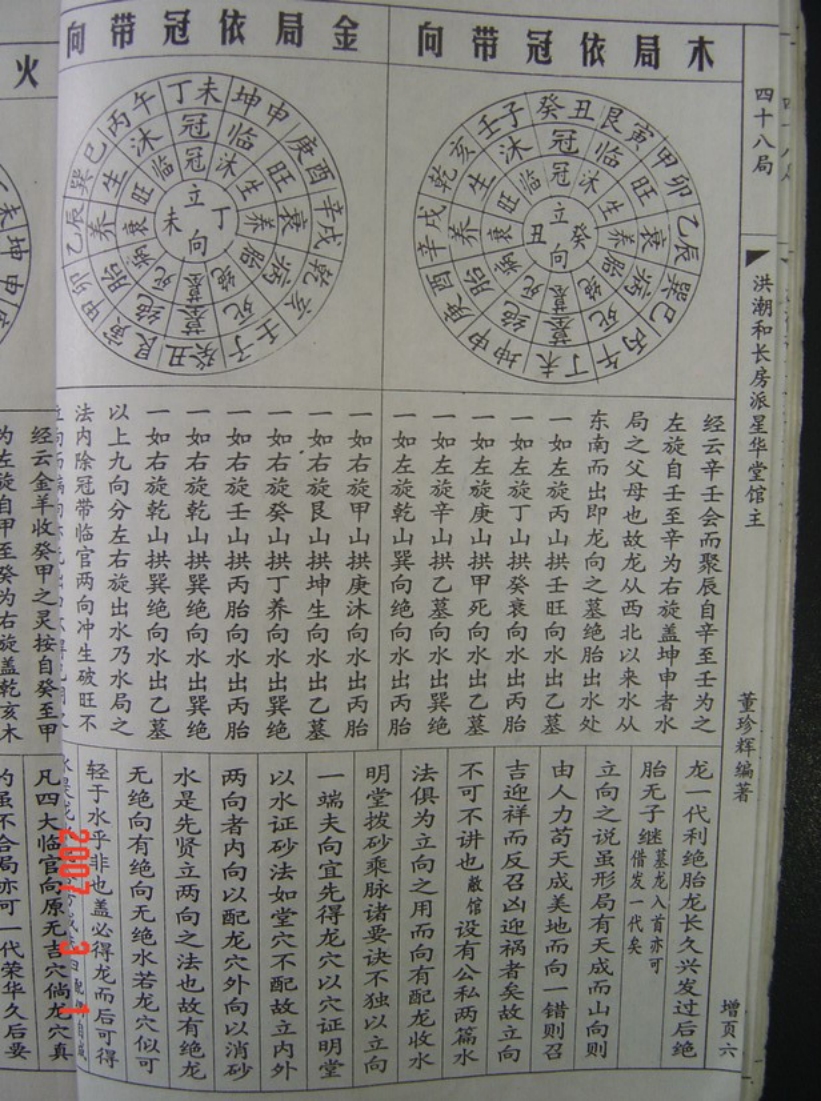 四十八局
洪潮和长房派星华堂馆主
董珍辉编著
增页六
木局依冠带向
癸丑艮寅甲卯乙辰巽巳丙午丁未坤申庚酉辛戌乾亥壬子
冠临旺衰病死墓绝胎养生沐
冠沐生养胎绝墓死病衰旺临
立向
丑癸
金局依冠带向
丁未坤申庚酉辛戌乾亥壬子癸丑艮寅甲卯乙辰巽巳丙午
冠临旺衰病死墓绝胎养生沐
冠沐生养胎绝墓死病衰旺临
立向
未丁
火
经云辛壬会而聚辰自辛至壬为之
左旋自壬至辛为右旋盖坤申者水
局之父母也故龙从西北以来水从
东南而出即龙向之墓绝胎出水处
一如左旋丙山拱壬旺向水出乙墓
一如左旋丁山拱癸衰向水出丙胎
一如左旋庚山拱甲死向水出乙墓
一如左旋辛山拱乙墓向水出巽绝
一如左旋乾山巽向绝向水出丙胎
一如右旋甲山拱庚沐向水出丙胎
一如右旋艮山拱坤生向水出乙墓
一如右旋癸山拱丁养向水出巽绝
一如右旋壬山拱丙胎向水出丙胎
一如右旋乾山拱巽绝向水出巽绝
一如右旋乾山拱巽绝向水出乙墓
以上九向分左右旋出水乃水局之
法内除冠带临官两向冲生破旺不
经云金羊收癸甲之灵按自癸至甲
为左旋自甲至癸为右旋盖乾亥木
龙一代利绝胎龙长久兴发过后绝
胎无子继墓龙入首亦可借发一代矣
立向之说虽形局有天成而山向则
由人力苟天成美地而向一错则召
吉迎祥而反召凶迎祸者矣故立向
不可不讲也敝馆设有公私两篇水
法俱为立向之用而向有配龙收水
明堂拨砂乘脉诸要诀不独以立向
一端夫向宜先得龙穴以穴证明堂
以水证砂法如堂穴不配故立内外
两向者内向以配龙穴外向以消砂
水是先贤立两向之法也故有绝龙
无绝向有绝向无绝水若龙穴似可
轻于水乎非也盖必得龙而后可得
凡四大临官向原无吉穴倘龙穴真
的虽不合局亦可一代荣华久后要
2007 3 1